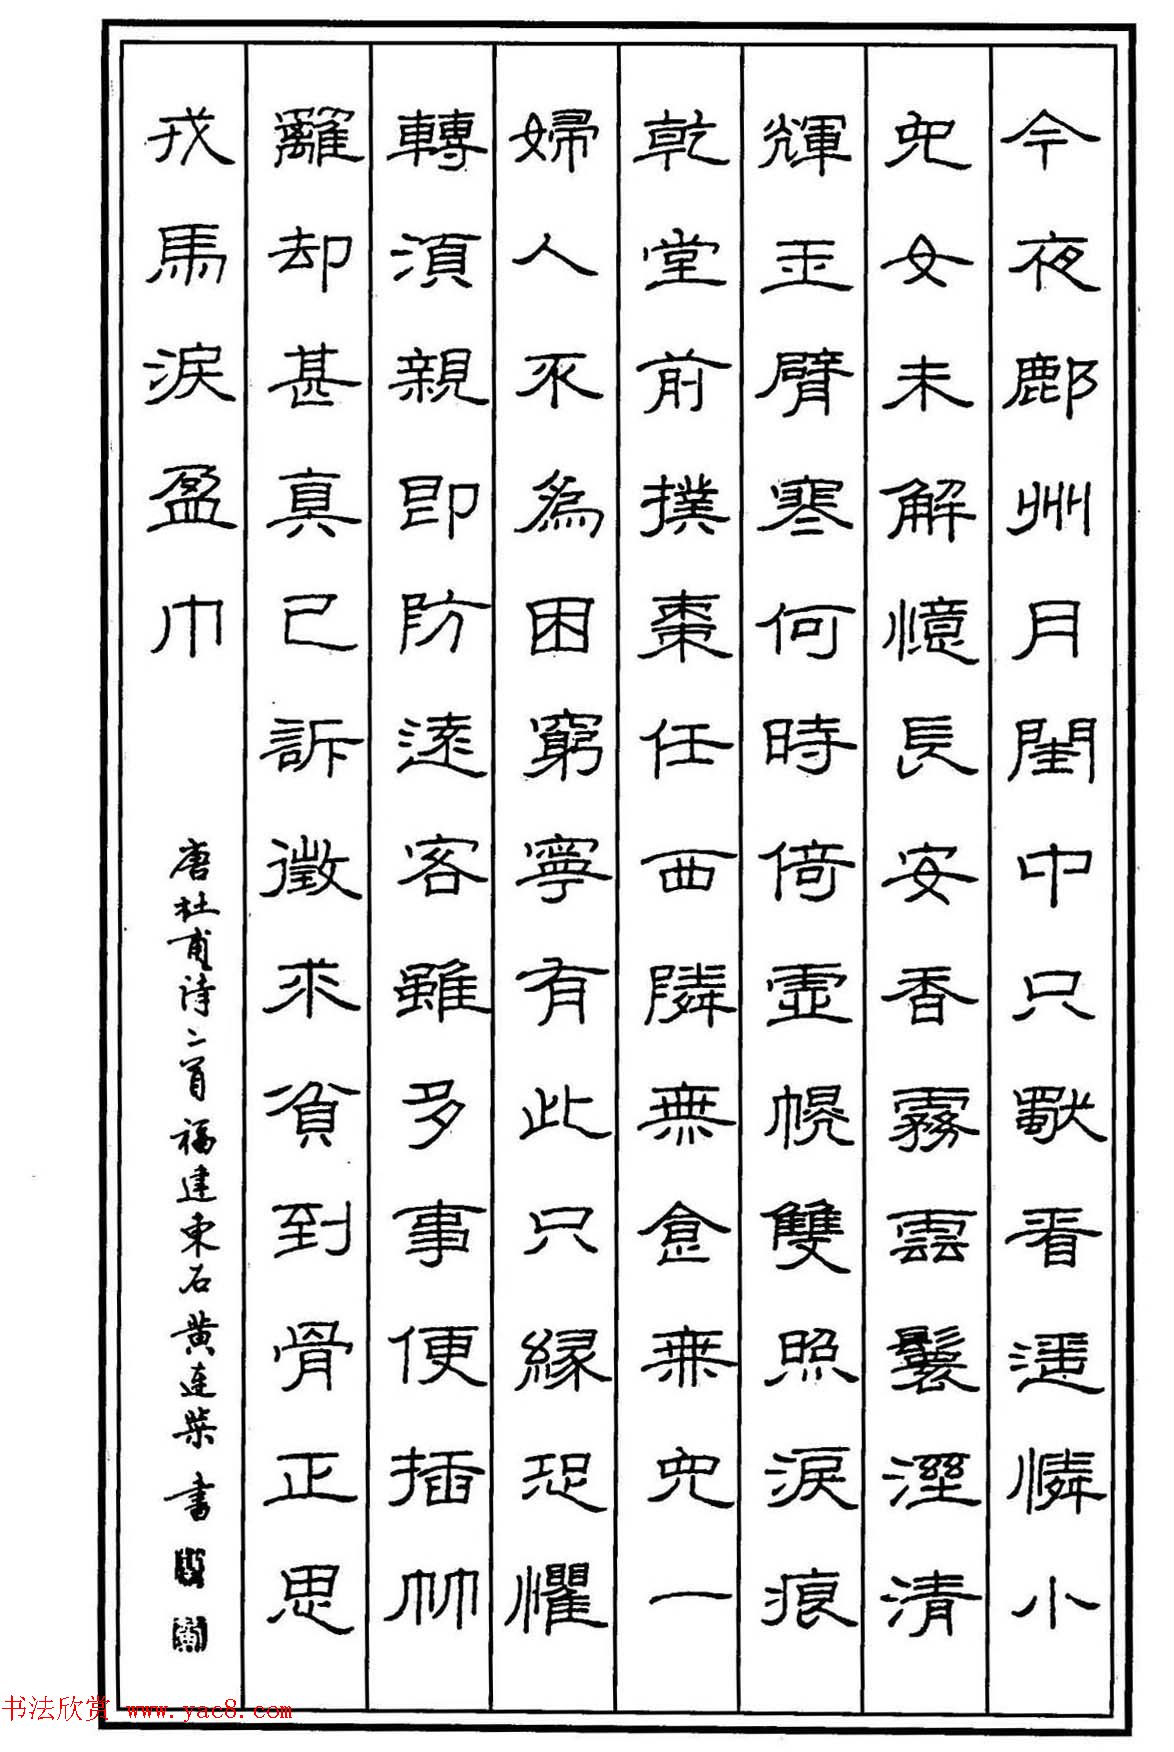 今夜鄜州月閨中只獨看遥憐小
兒女未解憶長安香霧雲鬟溼清
輝玉臂寒何時倚虚幌雙照淚痕
乾堂前撲棗任西隣無食無兒一
婦人不為困窮寧有此只緣恐懼
轉須親即防遠客雖多事便插竹
籬却甚真已訴徵求貧到骨正思
戎馬淚盈巾
唐杜甫诗二首福建東石黄连荣书
书法欣赏 www.yac8.com